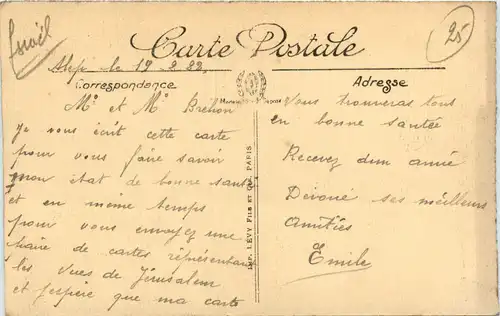 Israël
25
Carte Postale
Alep le 19 2 22
Correspondance
Adresse
Mr et Me Brehon
Je vous écrit cette carte
pour vous faire savoir
mon état de bonne santé
et en même temps
pour vous envoyez une
paire de cartes réprésentant
les vues de Jérusalem
et j'espère que ma carte
Vous trouveras tous
en bonne santée
Recevez d'un amie
Dévoué ses meilleurs
Amitiés
Emile
IMP. LÉVY FILS ET CIE, PARIS